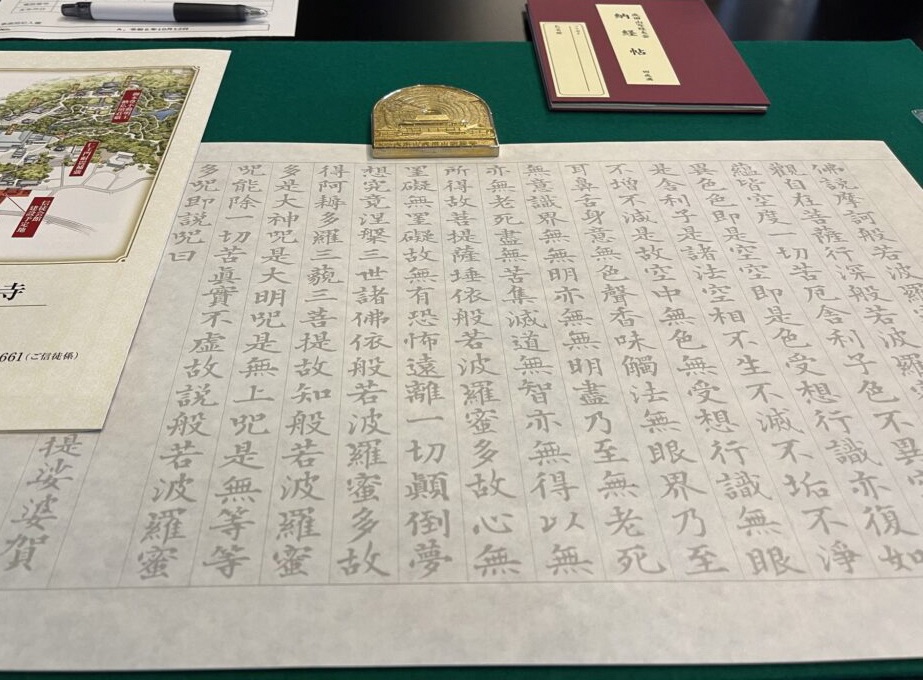 佛説摩訶般若波羅
觀自在菩薩行深般若波羅
蘊皆空度一切苦厄舍利子色不異
異色色即是空空即是色受想行識亦復如
是舍利子是諸法空相不生不滅不垢不淨
不增不減是故空中無色無受想行識無眼
耳鼻舌身意無色聲香味觸法無眼界乃至
無意識界無無明亦無無明盡乃至無老死
亦無老死盡無苦集滅道無智亦無得以無
所得故菩提薩埵依般若波羅蜜多故心無
罣礙無罣礙故無有恐怖遠離一切顛倒夢
想究竟涅槃三世諸佛依般若波羅蜜多故
得阿耨多羅三藐三菩提故知般若波羅蜜
多是大神咒是大明咒是無上咒是無等等
咒能除一切苦眞實不虛故説般若波羅蜜
多咒即説咒曰
提娑婆賀
納経帖
寺
661(ご信徒係)